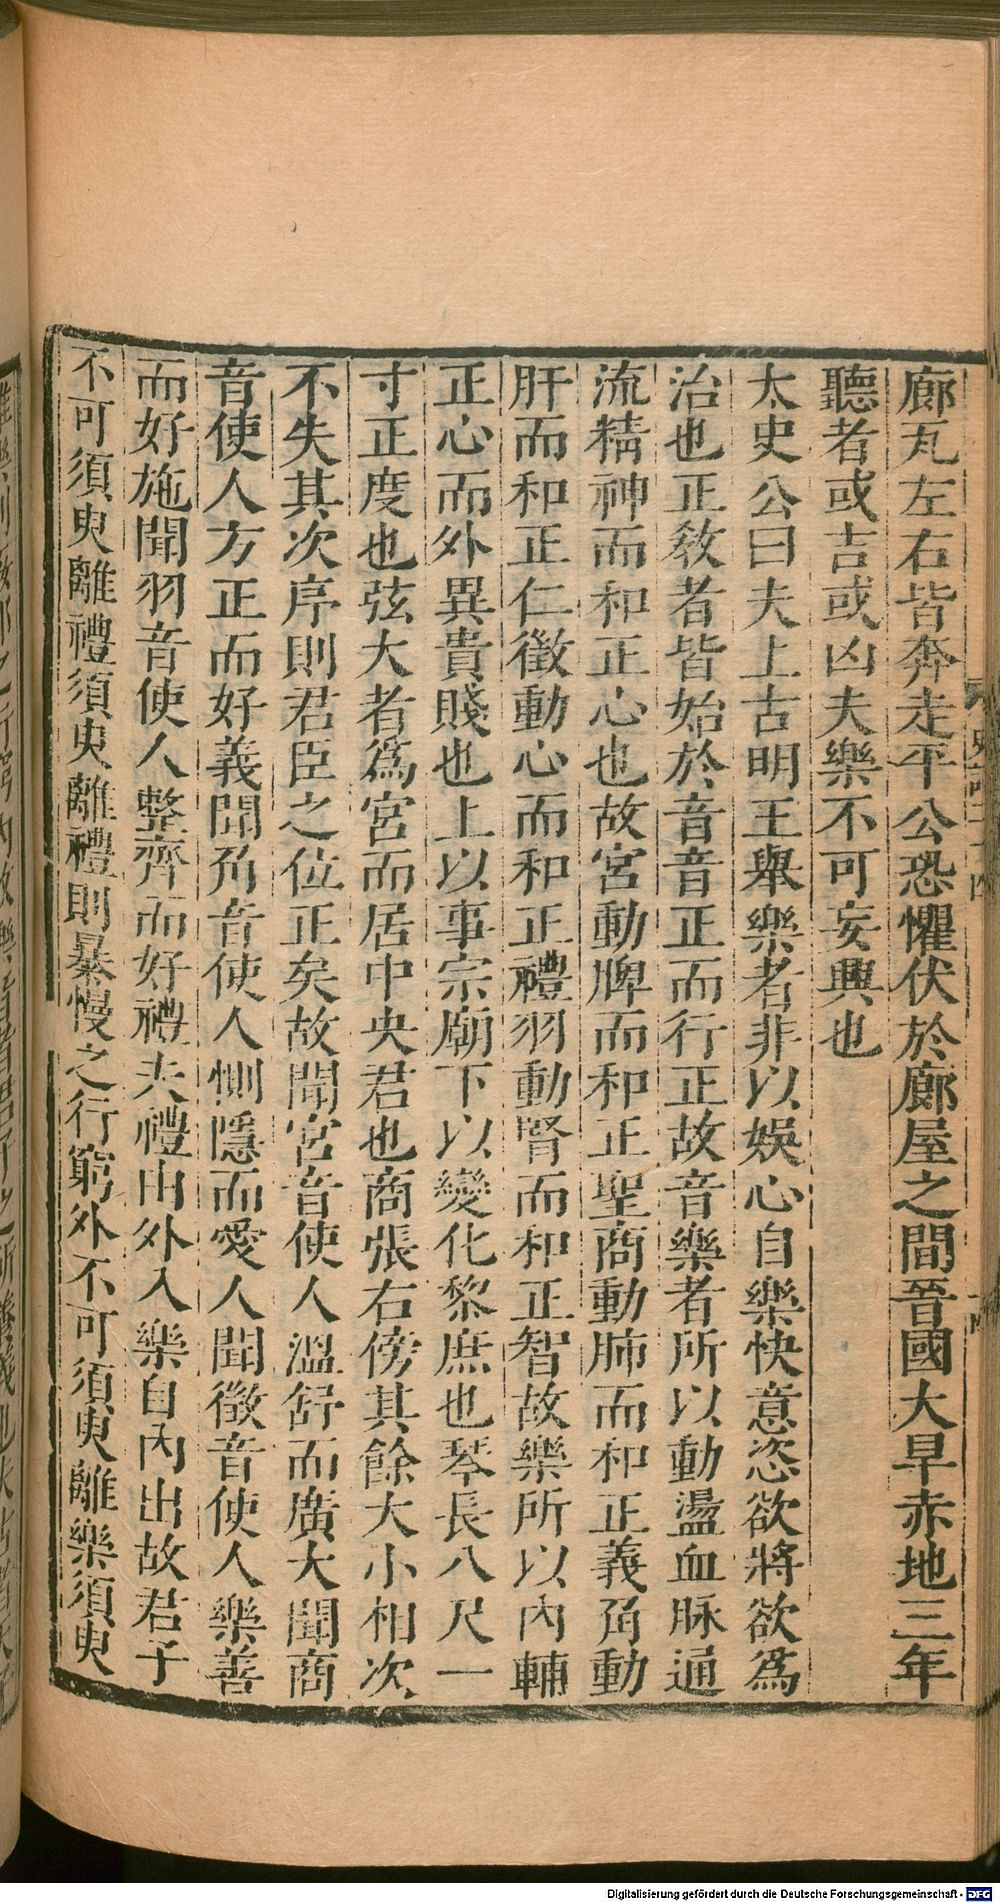 廊瓦左右皆奔走平公恐懼伏於廊屋之間晉國大旱赤地三年
聽者或吉或凶夫樂不可妄興也
太史公曰夫上古明王舉樂者非以娛心自樂快意恣欲將欲爲
治也正敎者皆始於音音正而行正故音樂者所以動盪血脉通
流精神而和正心也故宮動脾而和正聖商動肺而和正義角動
肝而和正仁徵動心而和正禮羽動腎而和正智故樂所以內輔
正心而外異貴賤也上以事宗廟下以變化黎庶也琴長八尺一
寸正度也弦大者爲宮而居中央君也商張右傍其餘大小相次
不失其次序則君臣之位正矣故聞宮音使人溫舒而廣大聞商
音使人方正而好義聞角音使人惻隱而愛人聞徵音使人樂善
而好施聞羽音使人整齊而好禮夫禮由外入樂自內出故君子
不可須臾離禮須臾離禮則暴慢之行窮外不可須臾離樂須臾
Digitalisierung gefördert durch die Deutsche Forschungsgemeinschaft - DFG